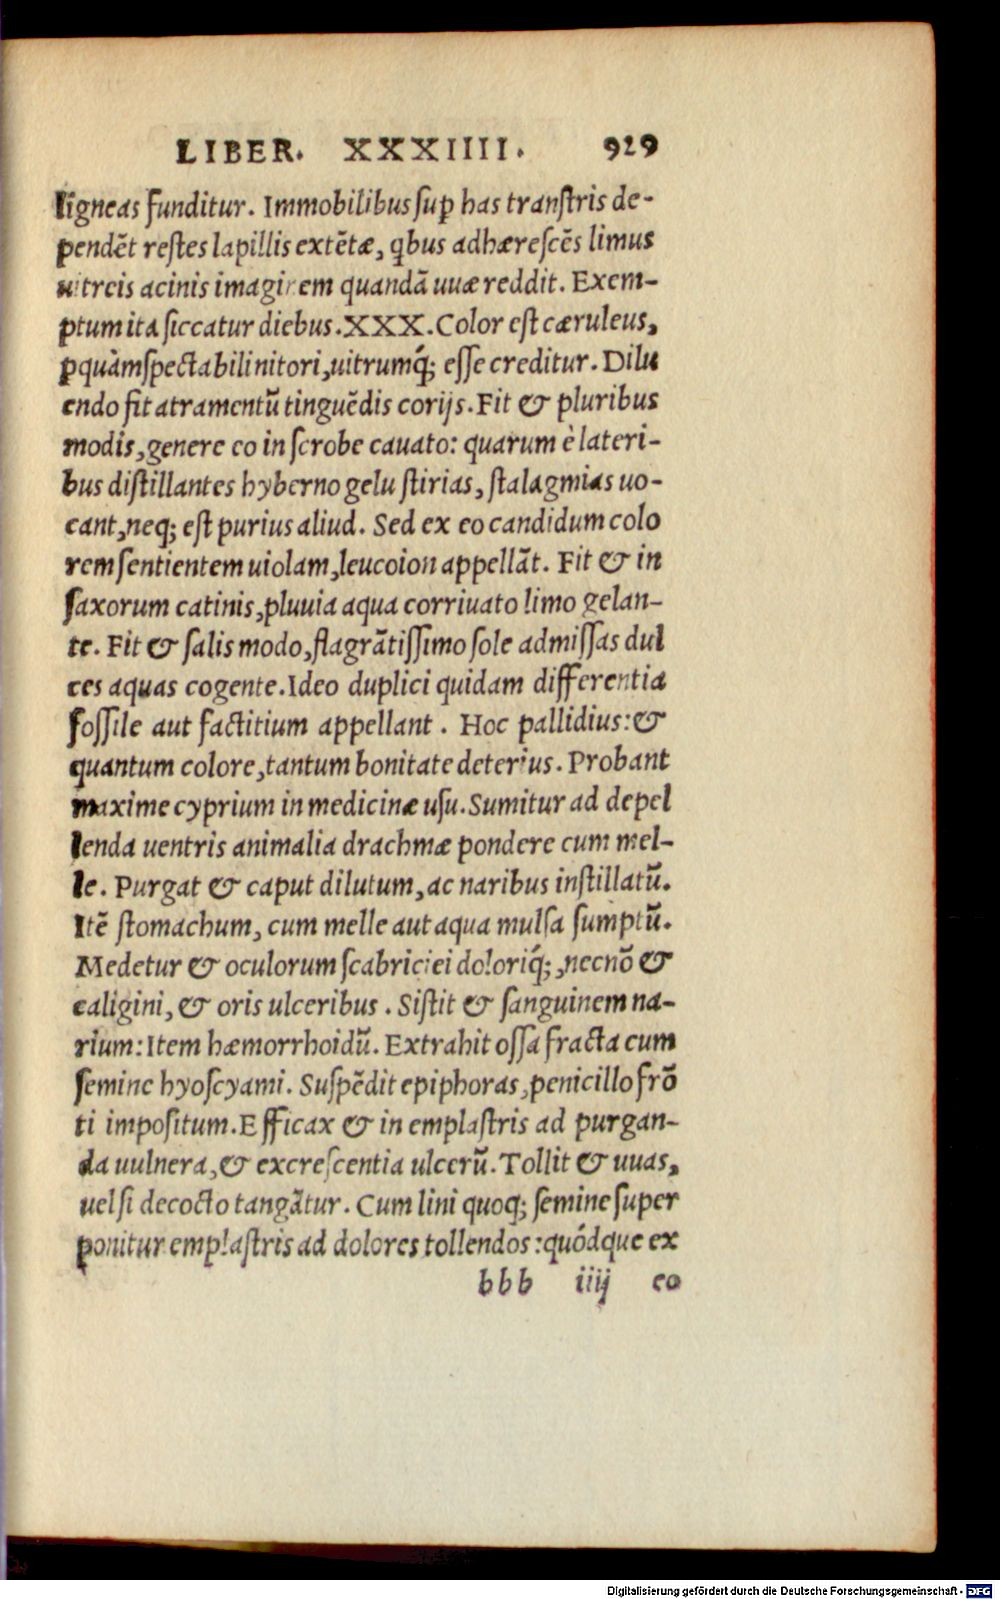 LIBER. XXXIIII. 929
ligneas funditur. Immobilibus suꝑ has transtris de-
pendēt restes lapillis extētæ, q̃bus adhærescēs limus
uitreis acinis imaginem quandā uuæ reddit. Exem-
ptum ita siccatur diebus. XXX. Color est cæruleus,
ꝑquàm spectabili nitori, uitrumq́; esse creditur. Dilu
endo fit atramentū tinguēdis corijs. Fit & pluribus
modis, genere eo in scrobe cauato: quarum è lateri-
bus distillantes hyberno gelu stirias, stalagmias uo-
cant, neq; est purius aliud. Sed ex eo candidum colo
rem sentientem uiolam, leucoion appellāt. Fit & in
saxorum catinis, pluuia aqua corriuato limo gelan-
te. Fit & salis modo, flagrātissimo sole admissas dul
ces aquas cogente. Ideo duplici quidam differentia
fossile aut factitium appellant. Hoc pallidius: &
quantum colore, tantum bonitate deterius. Probant
maxime cyprium in medicinæ usu. Sumitur ad depel
lenda uentris animalia drachmæ pondere cum mel-
le. Purgat & caput dilutum, ac naribus instillatū.
Itē stomachum, cum melle aut aqua mulsa sumptū.
Medetur & oculorum scabriciei doloriq́;, necnō &
caligini, & oris ulceribus. Sistit & sanguinem na-
rium: Item hæmorrhoidū. Extrahit ossa fracta cum
semine hyoscyami. Suspēdit epiphoras, penicillo frō
ti impositum. Efficax & in emplastris ad purgan-
da uulnera, & excrescentia ulcerū. Tollit & uuas,
uel si decocto tangātur. Cum lini quoq; semine super
ponitur emplastris ad dolores tollendos: quódque ex
bbb iiij eo
Digitalisierung gefördert durch die Deutsche Forschungsgemeinschaft - DFG